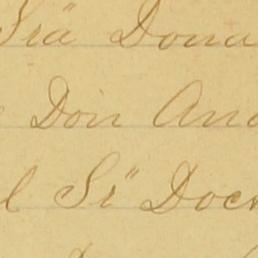 Sra Dona
Don An
l Sr Doc